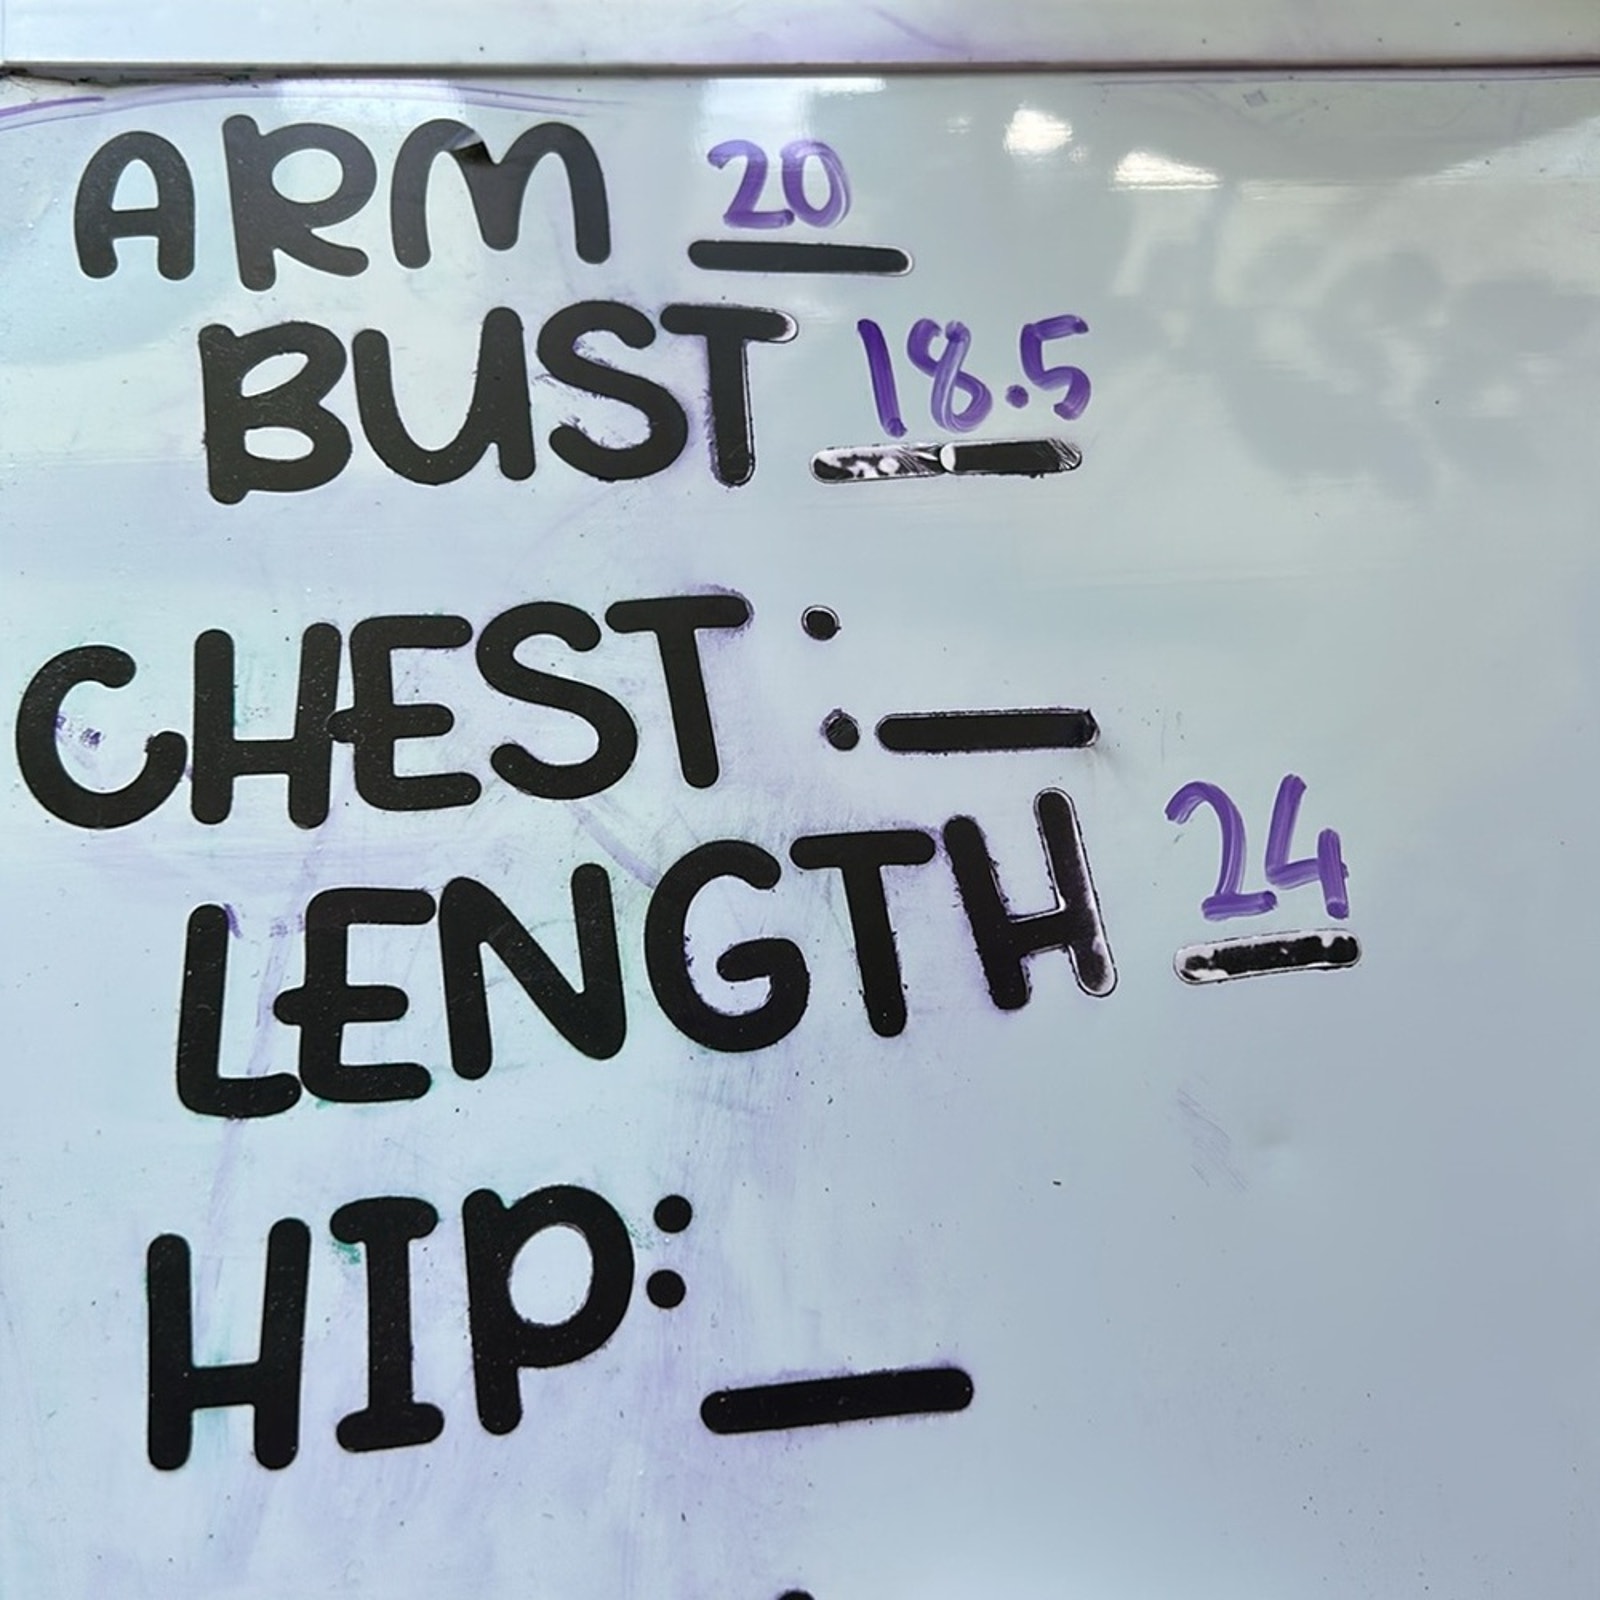 ARM 20
BUST 18.5
CHEST : _
LENGTH 24
HIP: _